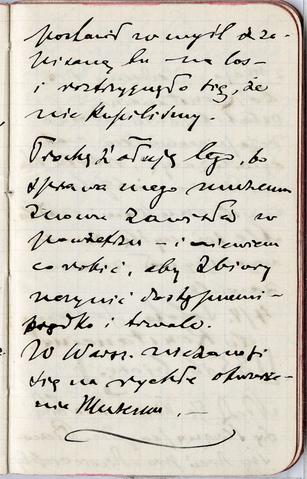 postawił w myśl dzo-
na los -
i roztrzygnęło się, że
nie kupiliśmy.
Trochę żałuję tego, bo
sprawa mego muzeum
znowu zawisła w
powietrzu - i niewiem
co robić, aby zbiory
uczynić dostępnemi -
prędko i trwale.
W Warsz. niezanosi
się na rychłe otworze-
nie Muzeum. -